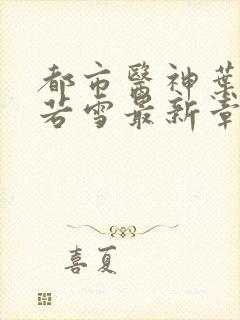 都市醫神葉
若雪最新章
喜夏